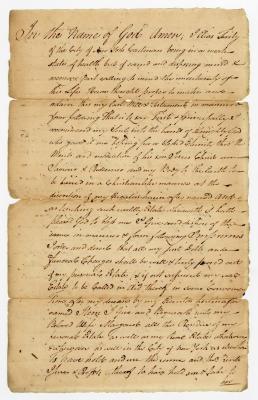 In the Name of God Amen, I
of the City of New York being in a weak
state of health but of sound and disposing mind &
memory and calling to mind the uncertainty of
this life have thought proper to make and
this my last Will & Testament in manner &
form following That is to say First & Principally I
recommend my Soul into the hands of Almighty God
who gave it me hoping for a thro' the
Merits and mediation of his son Jesus Christ our
Saviour & Redeemer and my Body to the Earth to
be buried in a Christianlike manner at the
discretion of my hereinafter named And
as touching such worldly Estate wherewith it hath
pleased God to bless me I Give and dispose of the
same in manner & form following
and direct that all my just Debts and
Funeral Charges shall be well & truly paid out
of my personal Estate & if not sufficient my real
Estate to be sold in some convenient
time after my decease by my Executors hereinafter
named Item I Give and Bequeath unto my
beloved Wife Margaret all the
Estate as well as my Real Estate whatsoever
& as well in the City of New York as elsewhere
to have hold and the same and the Rents
Issues & Profits thereof to have hold and